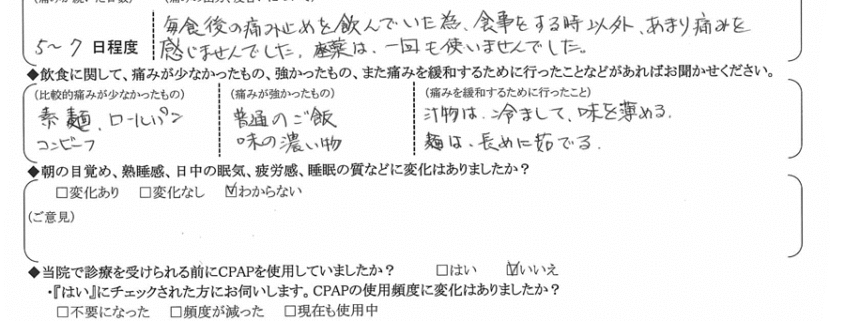 毎食後の痛み止めを飲んでいた為、食事をする時以外、あまり痛みを
5〜7 日程度 感じませんでした。座薬は、一回も使いませんでした。
◆飲食に関して、痛みが少なかったもの、強かったもの、また痛みを緩和するために行ったことなどがあればお聞かせください。
(比較的痛みが少なかったもの) (痛みが強かったもの) (痛みを緩和するために行ったこと)
素麺、ロールパン 普通のご飯 汁物は、冷まして、味を薄める。
コンビーフ 味の濃い物 麺は、長めに茹でる。
◆朝の目覚め、熟睡感、日中の眠気、疲労感、睡眠の質などに変化はありましたか?
□変化あり □変化なし ☑わからない
(ご意見)
◆当院で診療を受けられる前にCPAPを使用していましたか? □はい ☑いいえ
・『はい』にチェックされた方にお伺いします。CPAPの使用頻度に変化はありましたか?
□不要になった □頻度が減った □現在も使用中